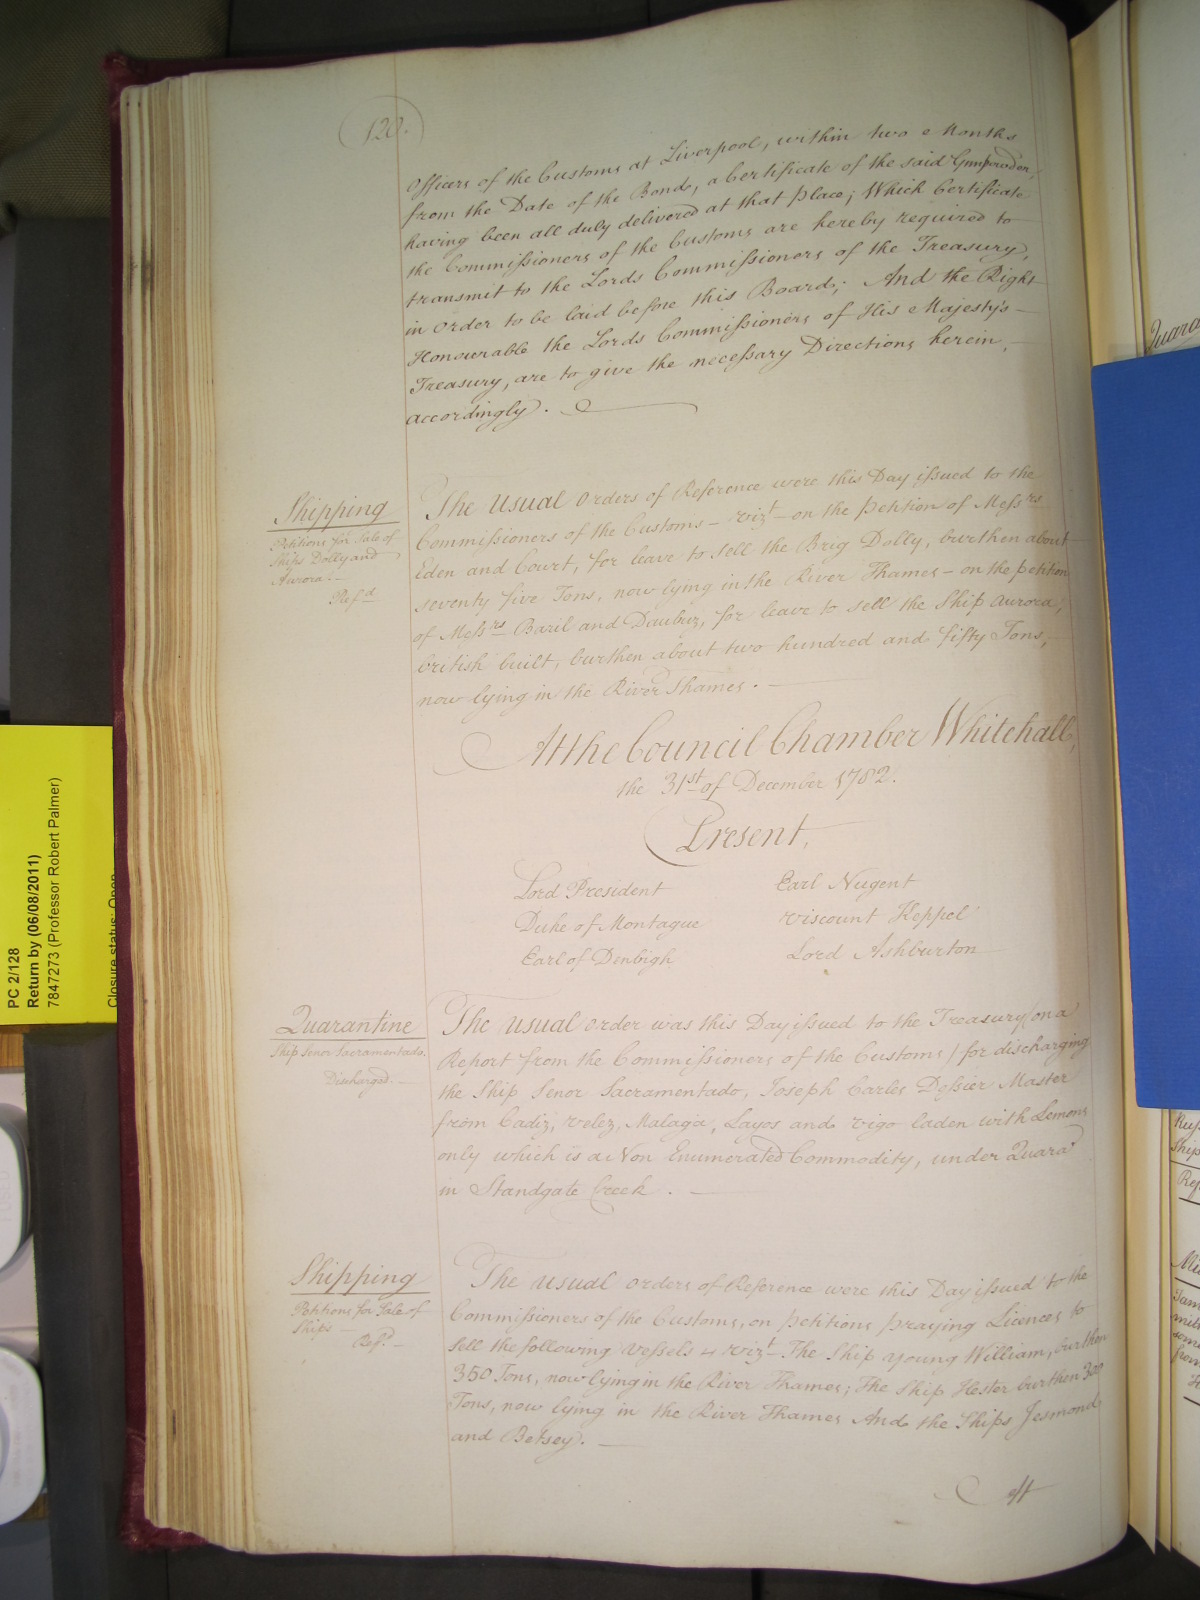 120.
Officers of the Customs at Liverpool, within two Months
from the Date of the Bond, a Certificate of the said Gunpowder,
having been all duly delivered at that Place; Which Certificate
the Commissioners of the Customs are hereby required to
transmit to the Lords Commissioners of the Treasury,
in order to be laid before this Board; And the Right
Honourable the Lords Commissioners of His Majesty's
Treasury, are to give the necessary Directions herein,
accordingly.
Shipping
Petitions for Sale of
Ships Dolly and
Aurora.
Ref.d
The usual Orders of Reference were this Day issued to the
Commissioners of the Customs – vizt – on the petition of Messrs
Eden and Court, for leave to sell the Brig Dolly, burthen about
seventy five Tons, now lying in the River Thames – on the petition
of Messrs Bazil and Daubuz, for leave to sell the Ship Aurora,
british built, burthen about two hundred and fifty Tons,
now lying in the River Thames. –
At the Council Chamber Whitehall,
the 31st of December 1782.
Present,
Lord President
Duke of Montague
Earl of Denbigh
Earl Nugent
Viscount Keppel
Lord Ashburton
Quarantine
Ship Senor Sacramentado.
Discharged. –
The usual order was this Day issued to the Treasury (on a
Report from the Commissioners of the Customs) for discharging
the Ship Senor Sacramentado, Joseph Carles Master
from Cadiz, Velez, Malaga, Layos and Vigo laden with Lemons
only which is a Non Enumerated Commodity, under Quara
in Standgate Creek. –
Shipping
Petitions for Sale of
Ships –
Ref.d –
The usual orders of Reference were this Day issued to the
Commissioners of the Customs, on petitions praying Licences to
sell the following Vessels vizt The Ship young William, burthen
350 Tons, now lying in the River Thames; The Ship Hester burthen 300
Tons, now lying in the River Thames And the Ships Jesmond
and Betsey. –
At
PC 2/128
Return by (06/08/2011)
7847273 (Professor Robert Palmer)
Closure status: Open